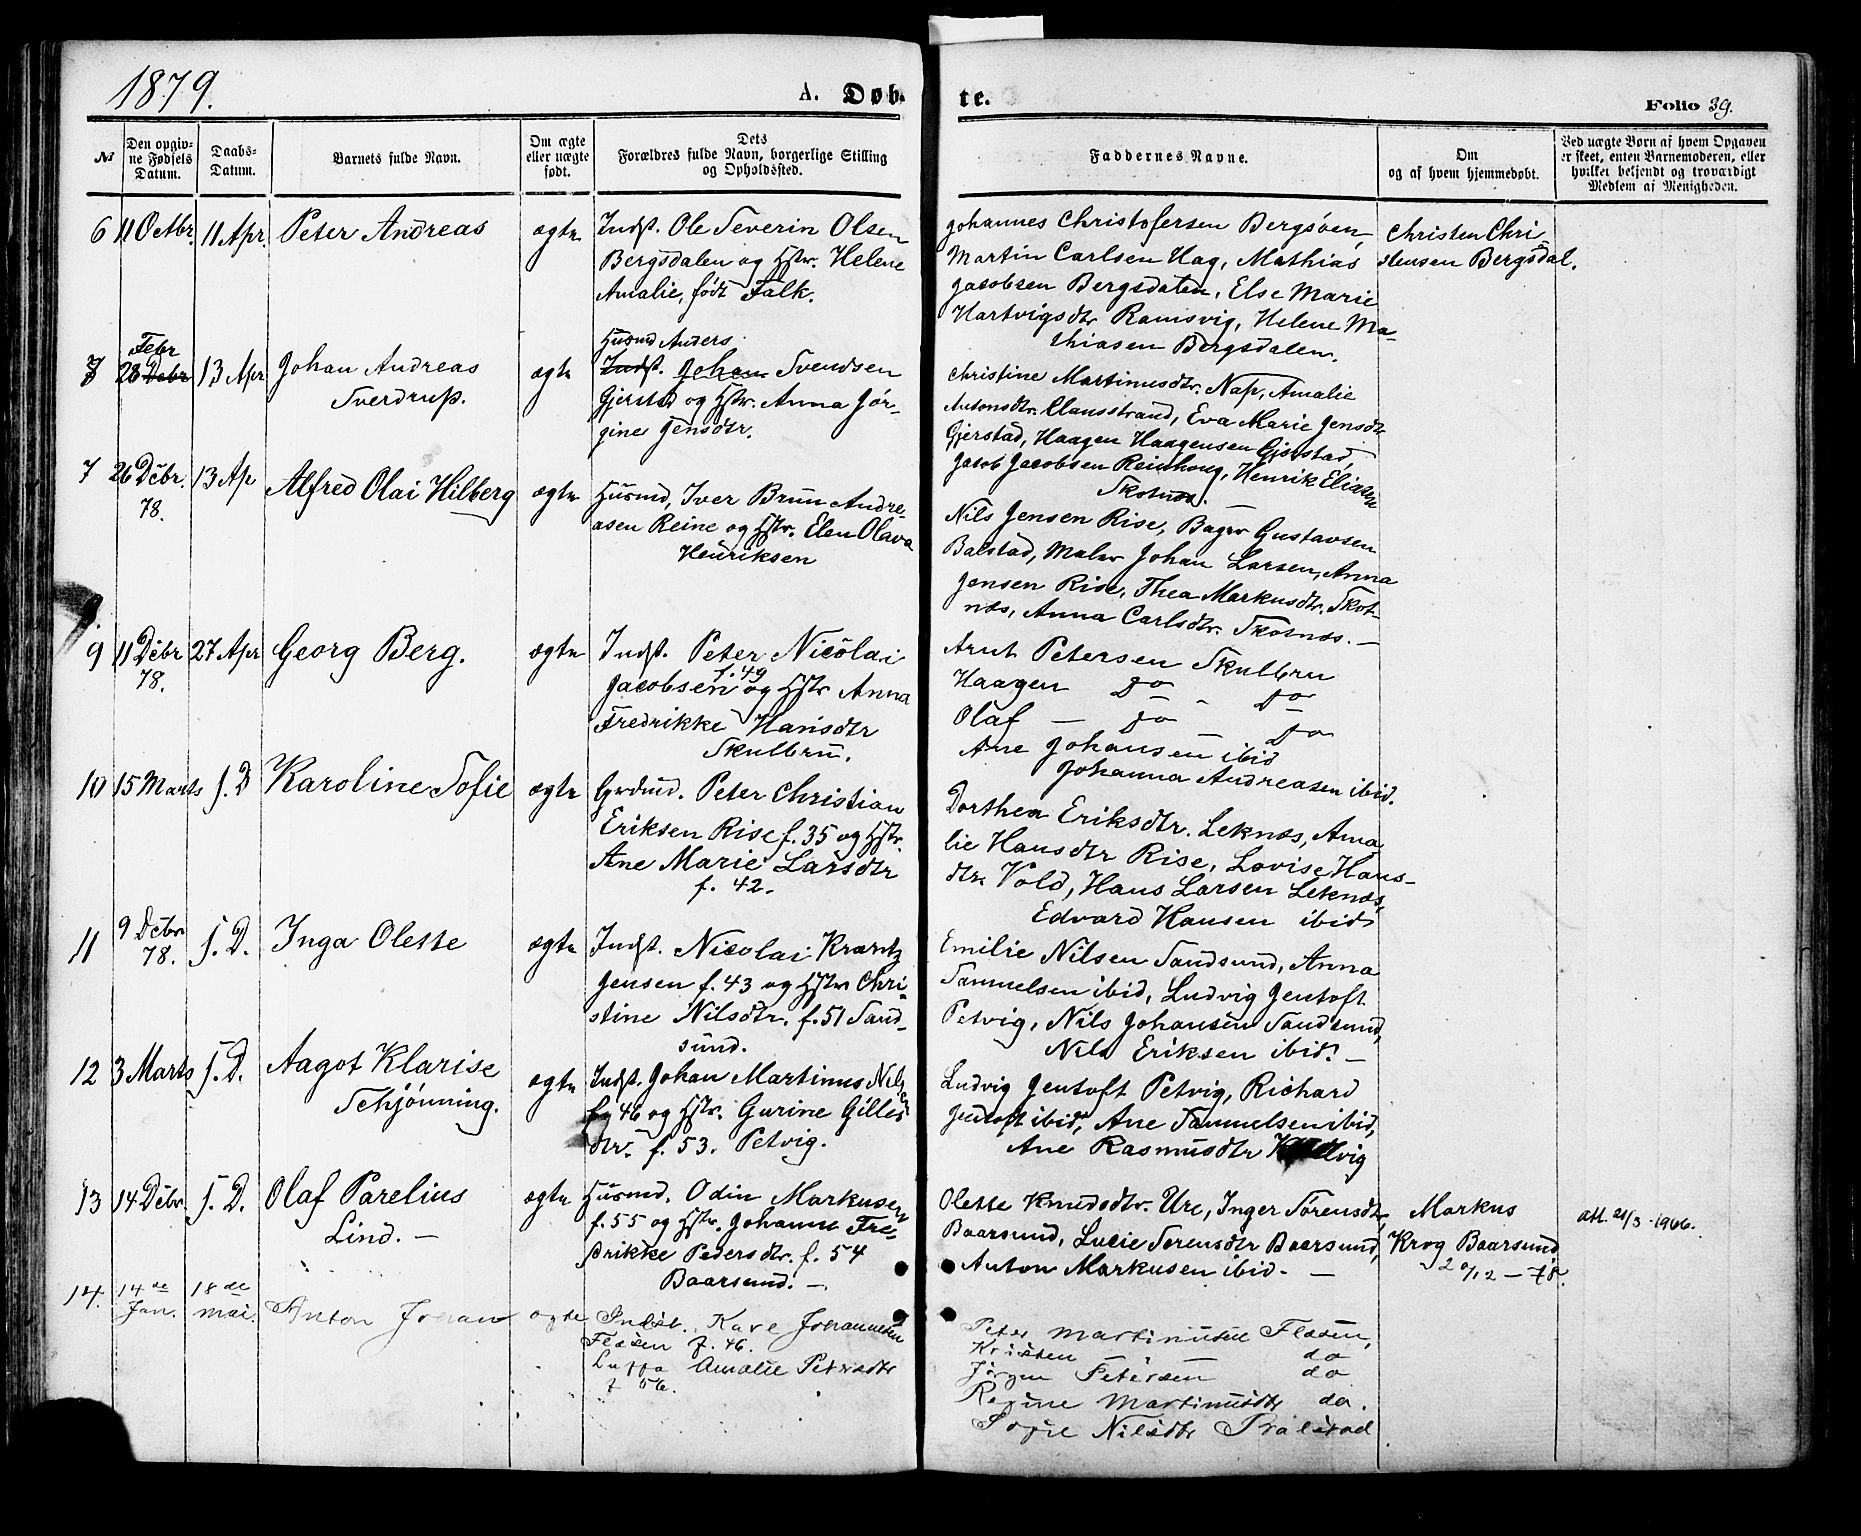 1879.
A. Døb-
te.
Folio 39.
No
Den opgiv-
ne Fødsels
Datum.
Daabs-
Datum.
Barnets fulde Navn.
Om ægte
eller uægte
født.
Dets
Forældres fulde Navn, borgerlige Stilling
og Opholdssted.
Faddernes Navne.
Om
og af hvem hjemmedøbt.
Ved uægte Børn af hvem Opgaven
er skeet, enten Barnemoderen, eller
hvilket bekjendt og troværdigt
Medlem af Menigheden.
6 11 Octbr. 11 Apr. Peter Andreas ægte
Indst. Ole Severin Olsen
Bergsdalen og Hstr. Helene
Amalie, født Falk.
Johannes Christofersen Bergsøen,
Martin Carlsen Hag, Mathias
Jacobsen Bergsdalen, Else Marie
Hartvigsdtr Ramsvig, Helene Ma-
thiasen Bergsdalen.
Christen Chri
stensen Bergsdal.
8 Febr
28 Debr 13 Apr Johan Andreas
Sverdrup. ægte
Husmd Anders
Indst. Johan Svendsen
Gjerstad og Hstr. Anna Jør-
gine Jensdtr.
Christine Martinusdtr. Nap, Amalie
Antonsdtr. Clausstrand, Eva Marie Jensdtr
Gjerstad, Haagen Haagensen Gjerstad,
Jacob Jacobsen Reinhoug, Henrik Eliasen
Skotnæs.
7 26 Debr.
78. 13 Ap Alfred Olai Hilberg ægte
Husmd, Iver Brun Andre-
asen Reine og Hstr. Elen Olava
Henriksen
Nils Jensen Rise, Bager Gustavsen
Balstad, Maler Johan Larsen, Anna
Jensen Rise, Thea Markusdtr. Skot-
næs, Anna Carlsdtr. Skotnæs. —
9 11 Debr
78. 27 Apr Georg Berg. ægte
Indst. Peter Nicolai
Jacobsen f. 49 og Hstr Anna
Fredrikke Hansdtr
Skulbru.
Arnt Petersen Skulbru
Haagen do do
Olaf — do do
Ane Johansen ibid
Johanna Andreasen ibid.
10 15 Marts s. D Karoline Sofie ægte
Grdmd. Peter Christian
Eriksen Rise f. 35 og Hstr.
Ane Marie Larsdtr
f. 42.
Dorthea Eriksdtr. Leknæs, Ama
lie Hansdtr Rise, Lovise Hans-
dtr. Vold, Hans Larsen Leknæs,
Edvard Hansen ibid
11 9 Debr
78. s. D. Inga Olette ægte
Indst. Nicolai Krantz
Jensen f. 43 og Hstr Chri-
stine Nilsdtr. f. 51 Sand-
sund.
Emilie Nilsen Sandsund, Anna
Samuelsen ibid, Ludvig Jentoft
Petvig, Nils Johansen Sandsund,
Nils Eriksen ibid. —
12 3 Marts s. D. Aagot Klarise
Schjønning. ægte
Indst. Johan Martinus Nilsen
f. 46 og Hstr. Gurine Gillis
dtr. f. 53. Petvig.
Ludvig Jentoft Petvig, Richard
Jentoft ibid, Ane Samuelsen ibid,
Ane Rasmusdtr
13 14 Debr. s. D. Olaf Parelius
Lind. — ægte
Husmd. Odin Markusen
f. 55 og Hstr. Johanne Fre-
drikke Pedersdtr. f. 54
Baarsund. —
Olette Knudsdtr. Ure, Inger Sørensdtr,
Baarsund, Lucie Sørensdtr Baarsund,
Anton Markusen ibid. —
Markus
Krog Baarsund
20/12 — 78.
att. 21/3 - 1966.
14. 14de
Jan. 18de
mai. Anton Johan ægte
Indst. Kare Johannesen
Flæsen f. 46.
Amalie Petersdtr
f 56.
Peter Martinusen Flæsen,
Kristen do
Jørgen Petersen do
Regine Martinusdtr do.
Sofie Nilsdtr